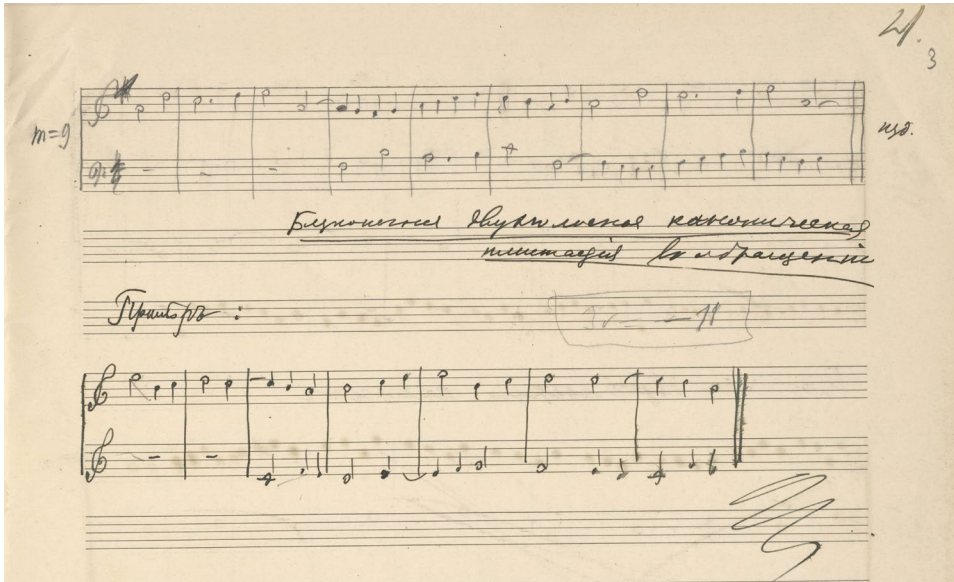 21.
3
m=9
изд.
Безконечная двухголосная каноническая
имитація въ обращеніи
Примѣръ :